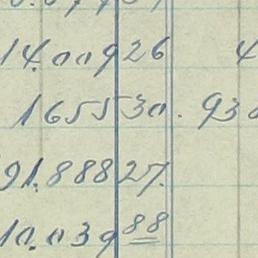 14.00926 4
165530. 930
91.88827.
10.03988